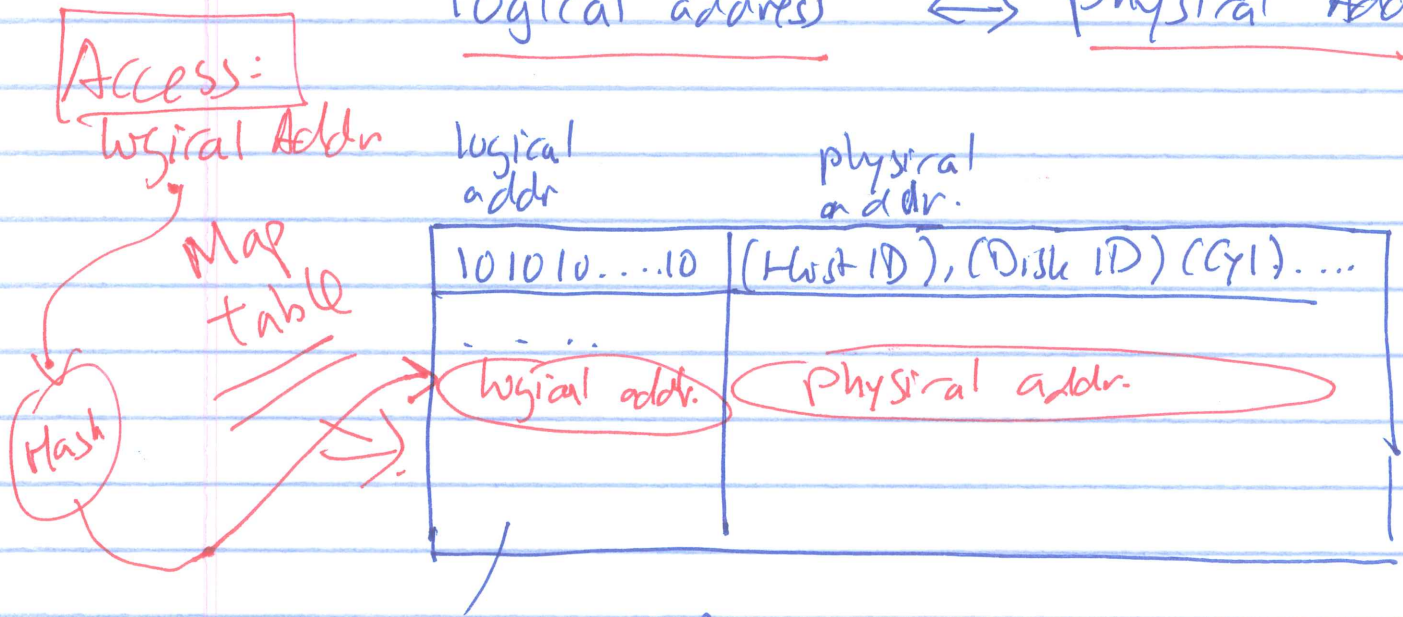 logical address ⟷ physical Add
Access:
logical Addr
logical addr
physical addr.
Map table
101010.....10 (Host ID), (Disk ID) (Cyl)....
. . . .
logical addr. physical addr.
Hash